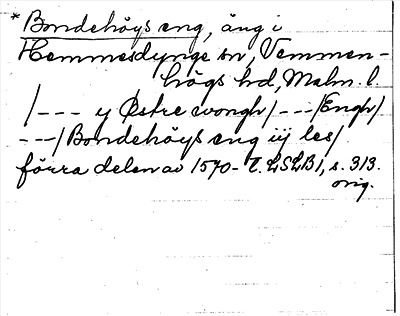 * Bondehöys eng, äng i
Hemmesdynge sn, Vemmen-
högs hd, Malm. l.
/--- y Østre wongh/---/Engh/
---/Bondehöys eng iij les/
förra delen av 1570-t. LSLB1, s. 313.
orig.